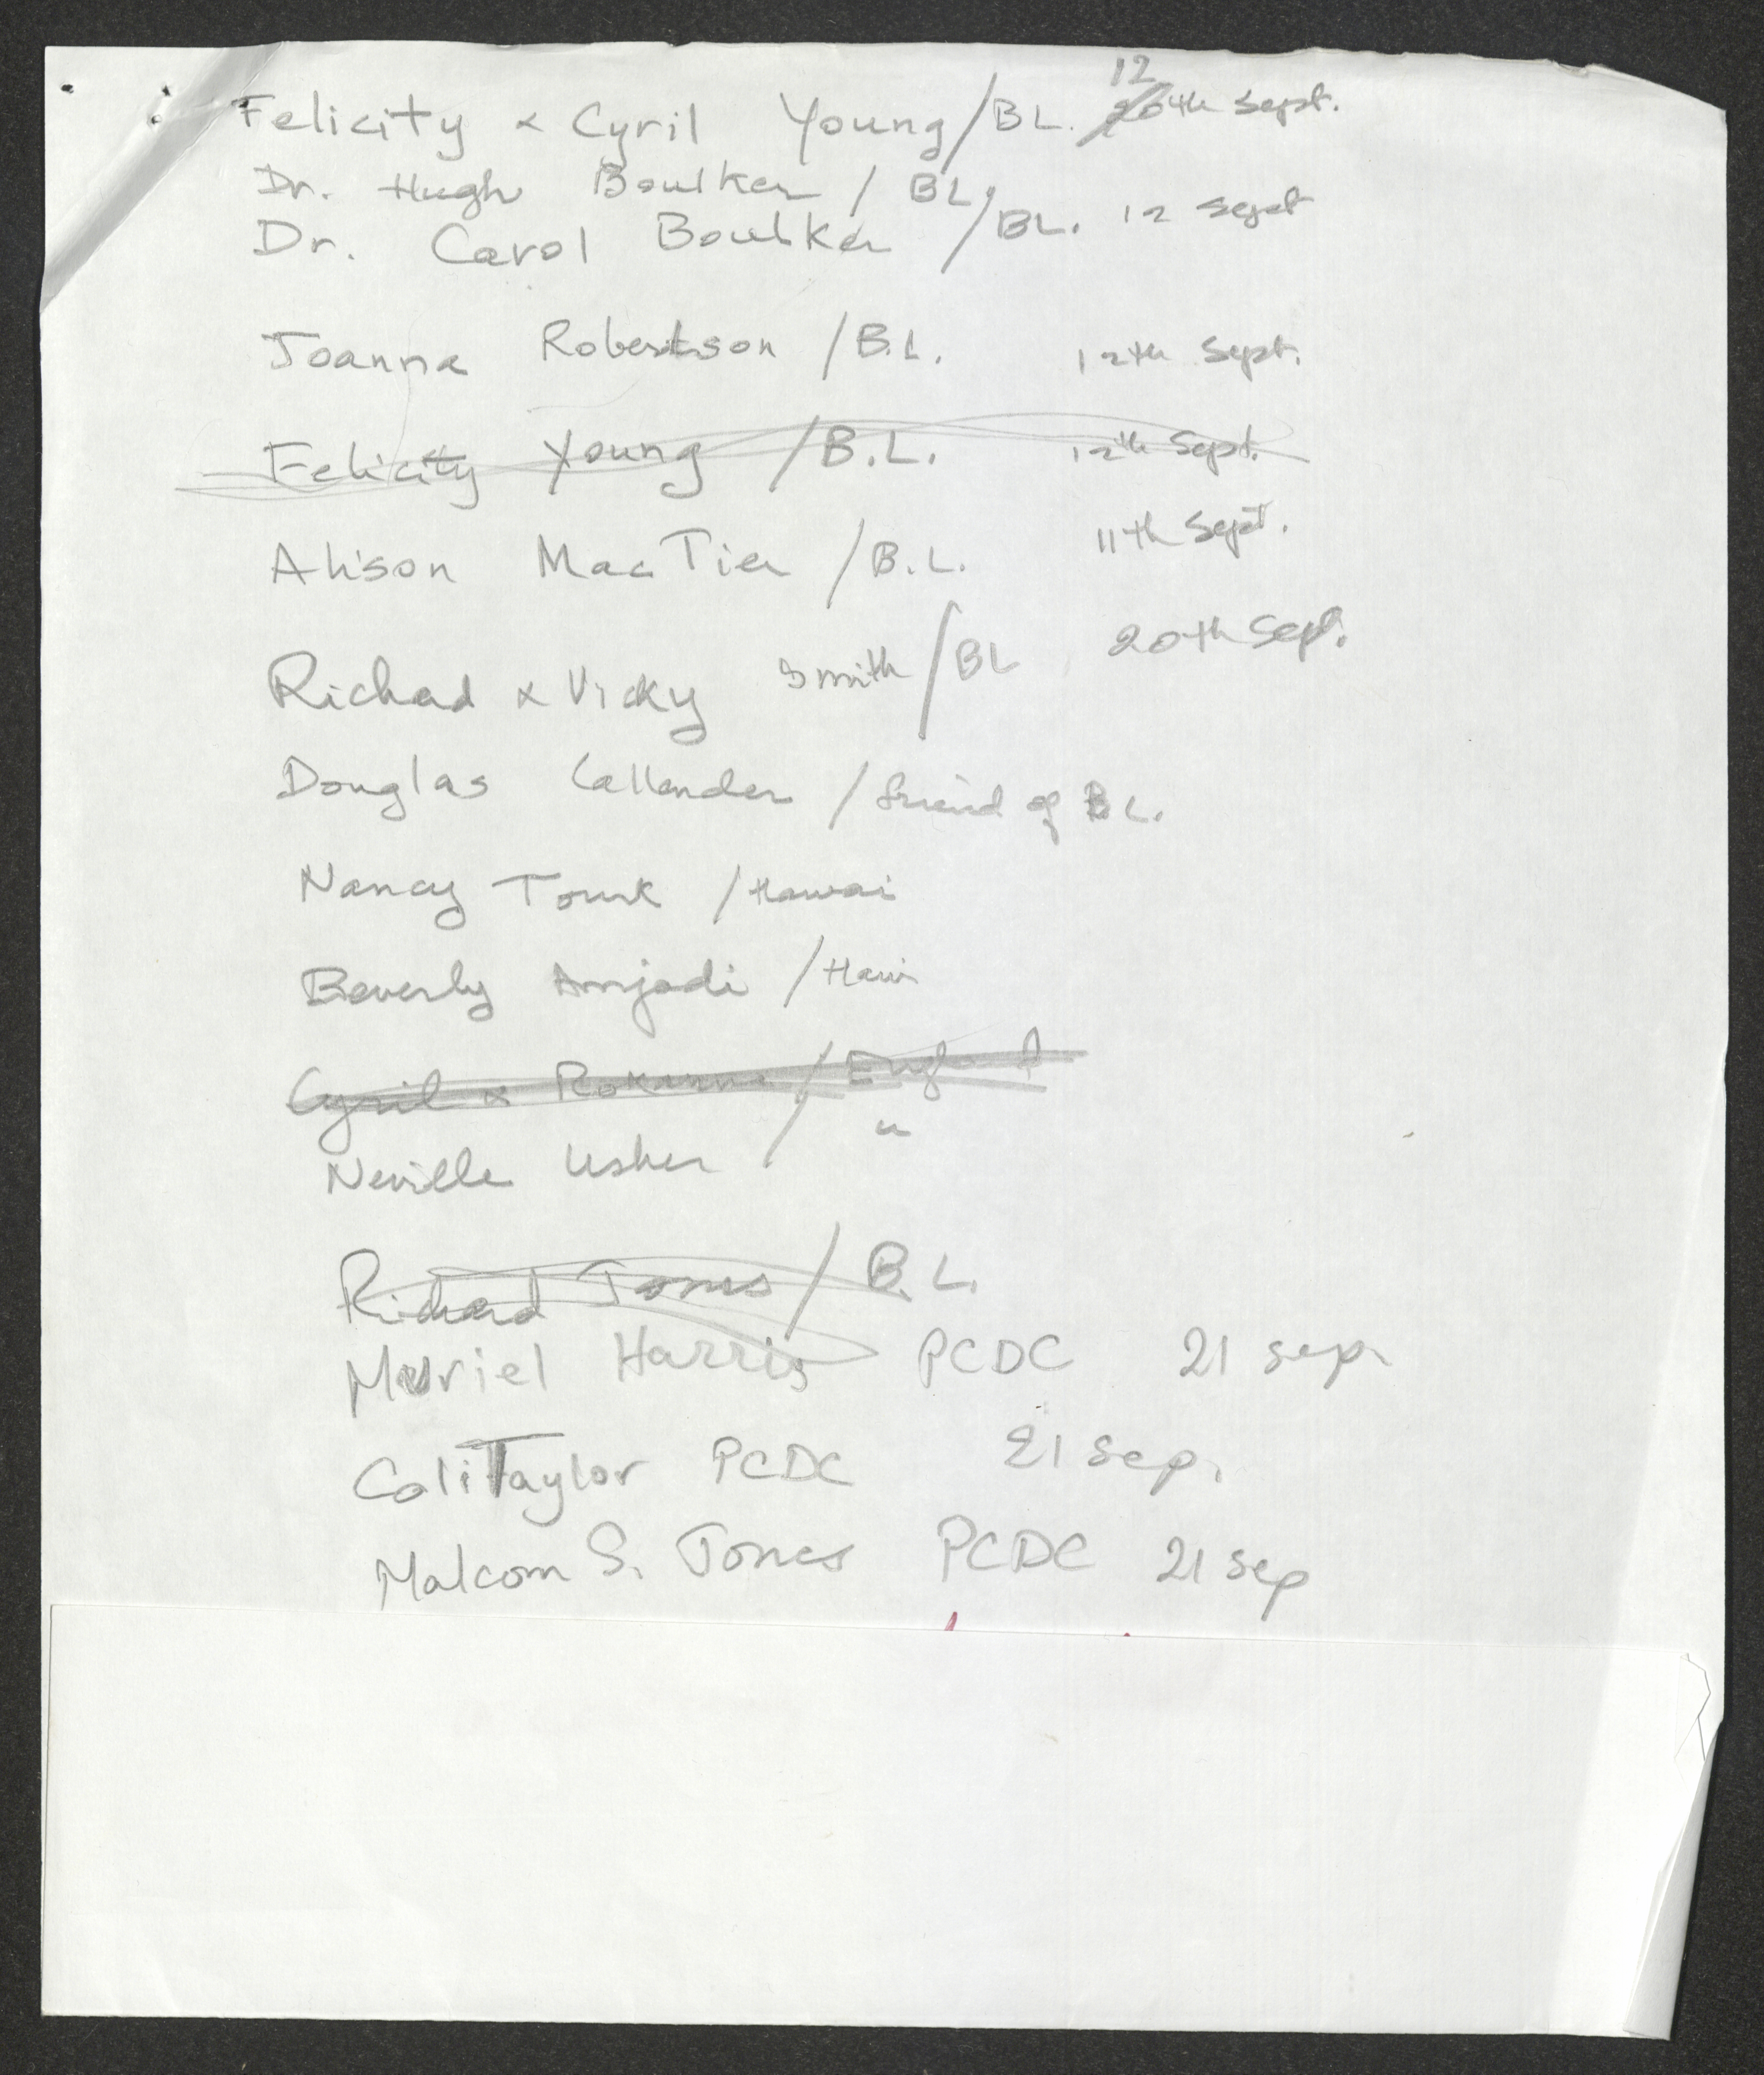 12
Felicity & Cyril Young/BL. 20th Sept.
Dr. Hugh Boulker / BL,
Dr. Carol Boulker /BL. 12 Sept
Joanna Robertson /B.L. 12th Sept.
Felicity Young /B.L. 12th Sept.
Alison MacTier /B.L. 11th Sept.
Richard & Vicky Smith/BL 20th Sept.
Douglas Callender /friend of BL.
Nancy Tourk /Hawai
Beverly Amjadi /Hawi
Cyril & Roxanna / England
Neville Usher / "
Richard Jones / B.L.
Muriel Harris PCDC 21 sep.
Coli Taylor PCDC 21 Sep.
Malcom S. Jones PCDC 21 sep